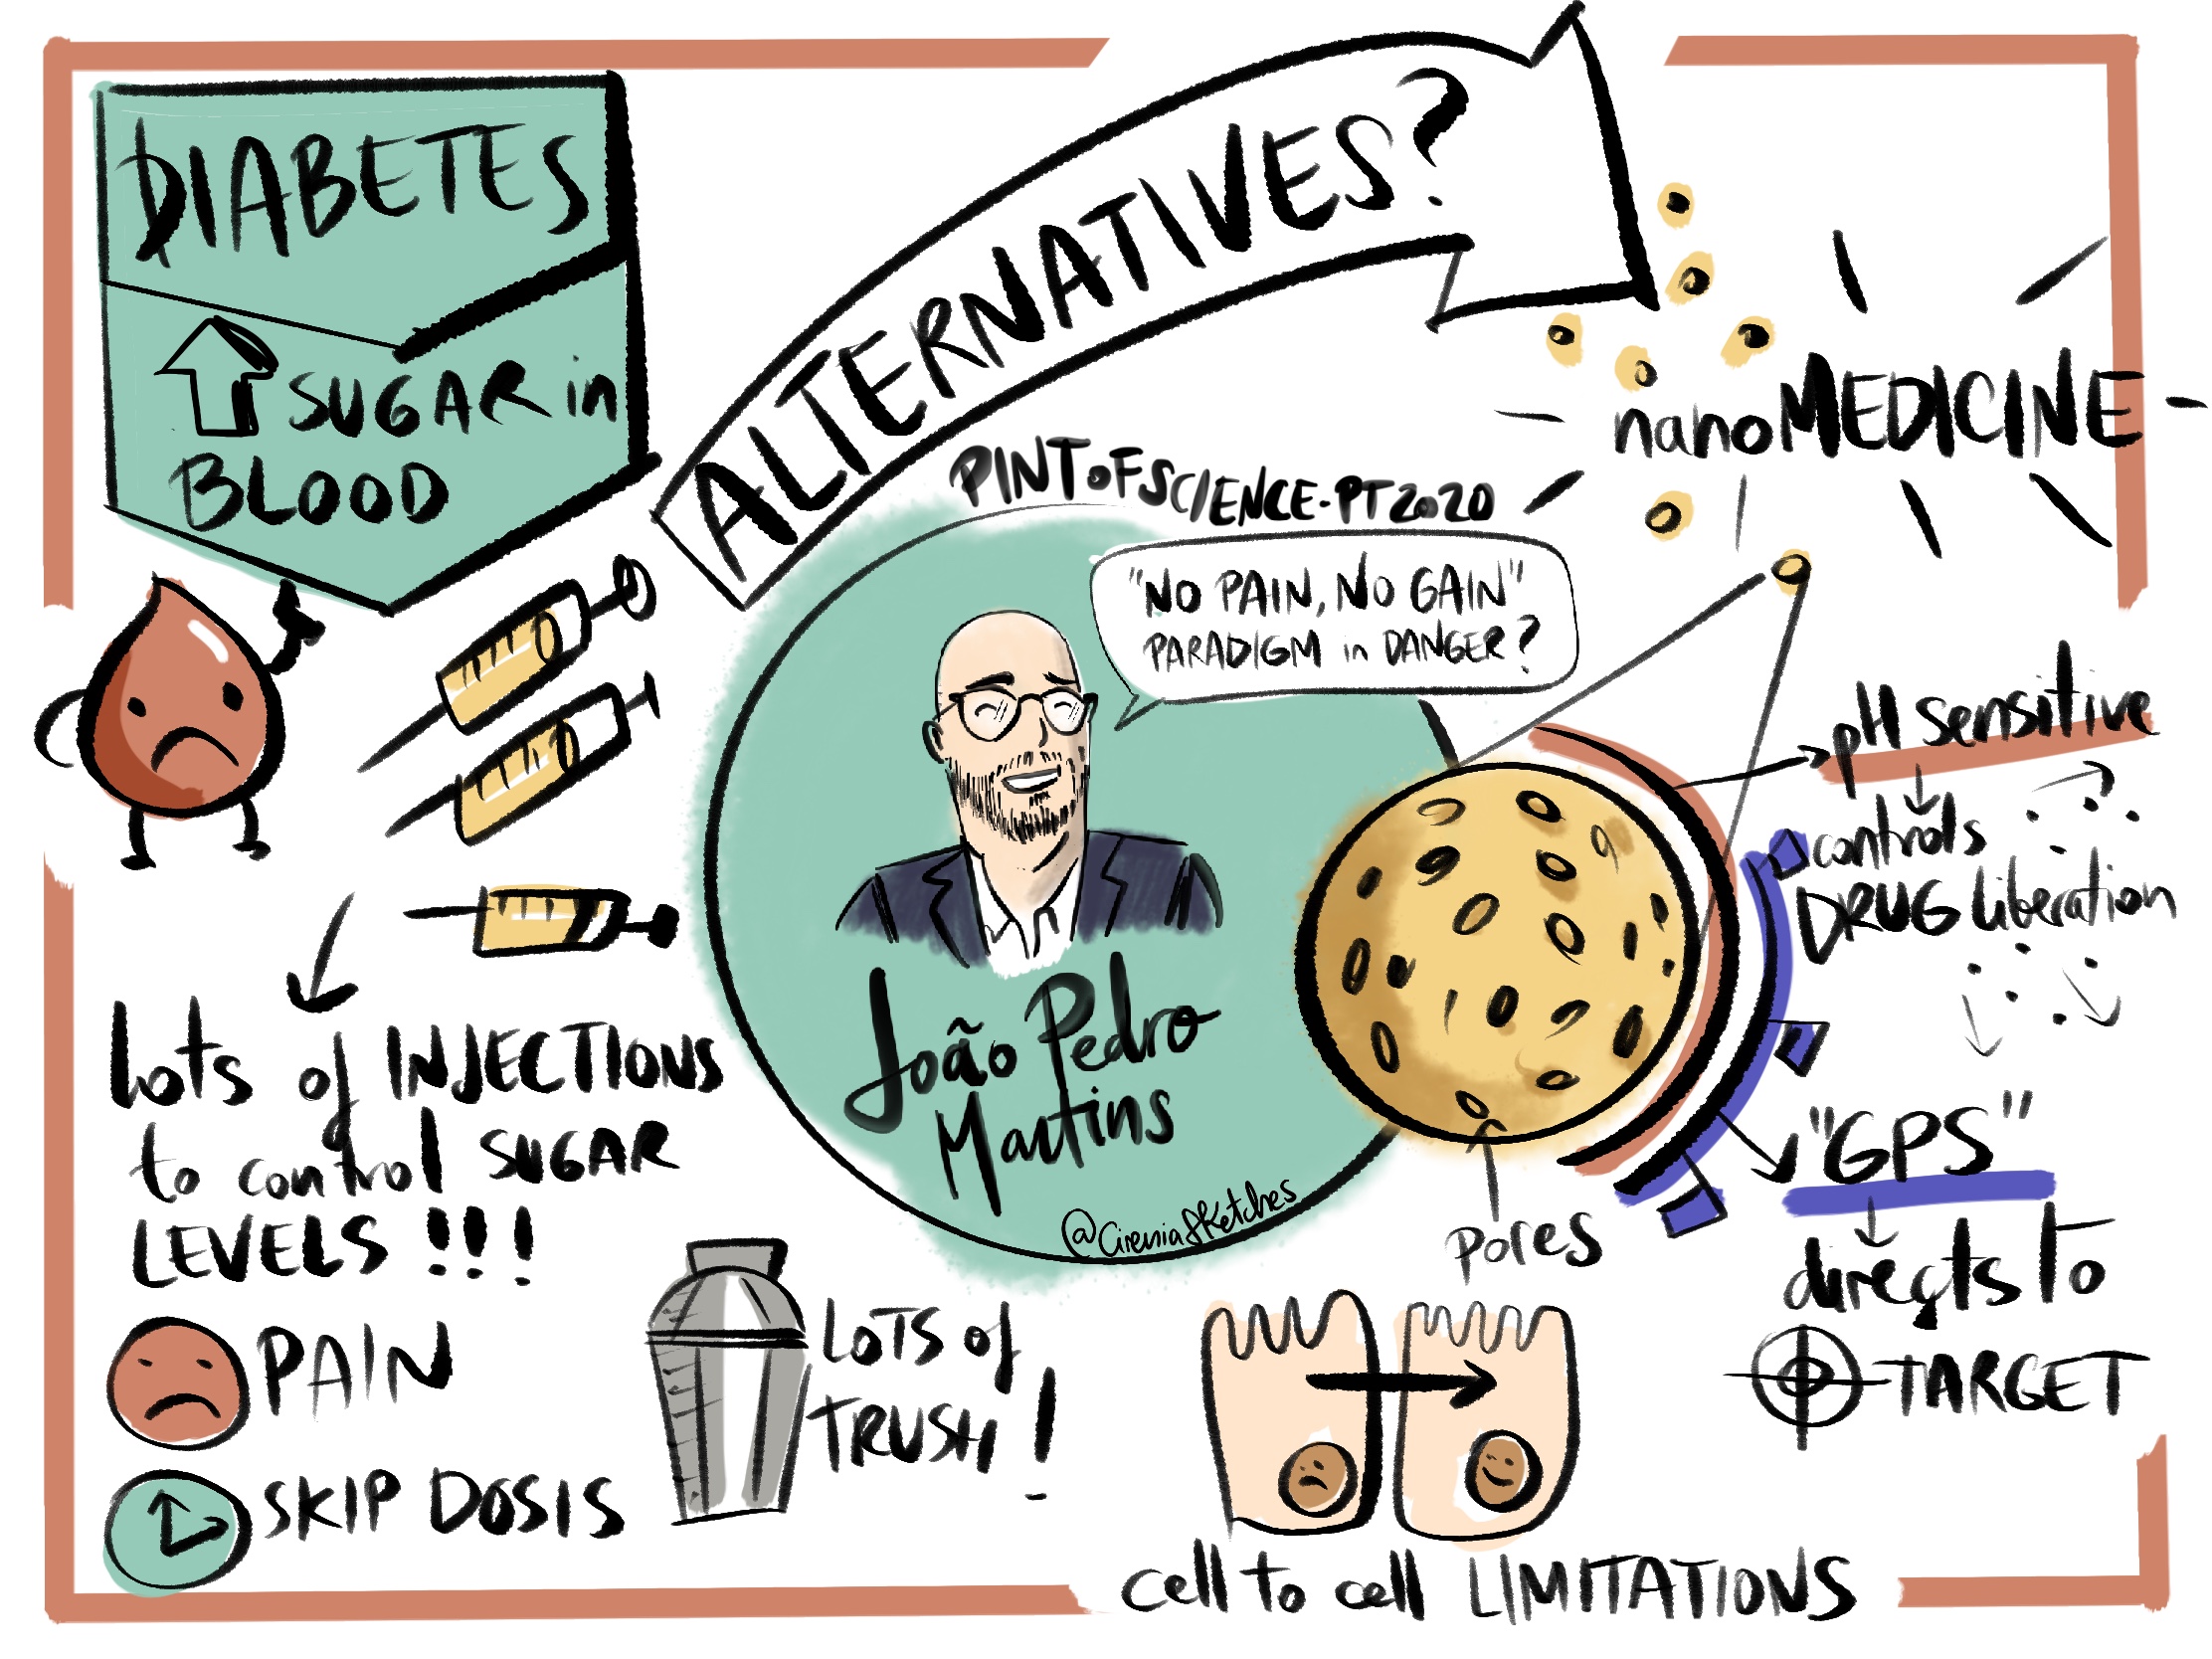 DIABETES
SUGAR in
BLOOD
ALTERNATIVES?
nanoMEDICINE
PINT oF SCIENCE-PT2020
"NO PAIN, NO GAIN"
PARADIGM in DANGER?
João Pedro
Martins
@CireniaSketches
lots of INJECTIONS
to control SUGAR
LEVELS !!!
PAIN
SKIP DOSIS
LOTS of
TRUSH!
pH sensitive
controls
DRUG liberation
"GPS"
directs to
TARGET
pores
cell to cell LIMITATIONS